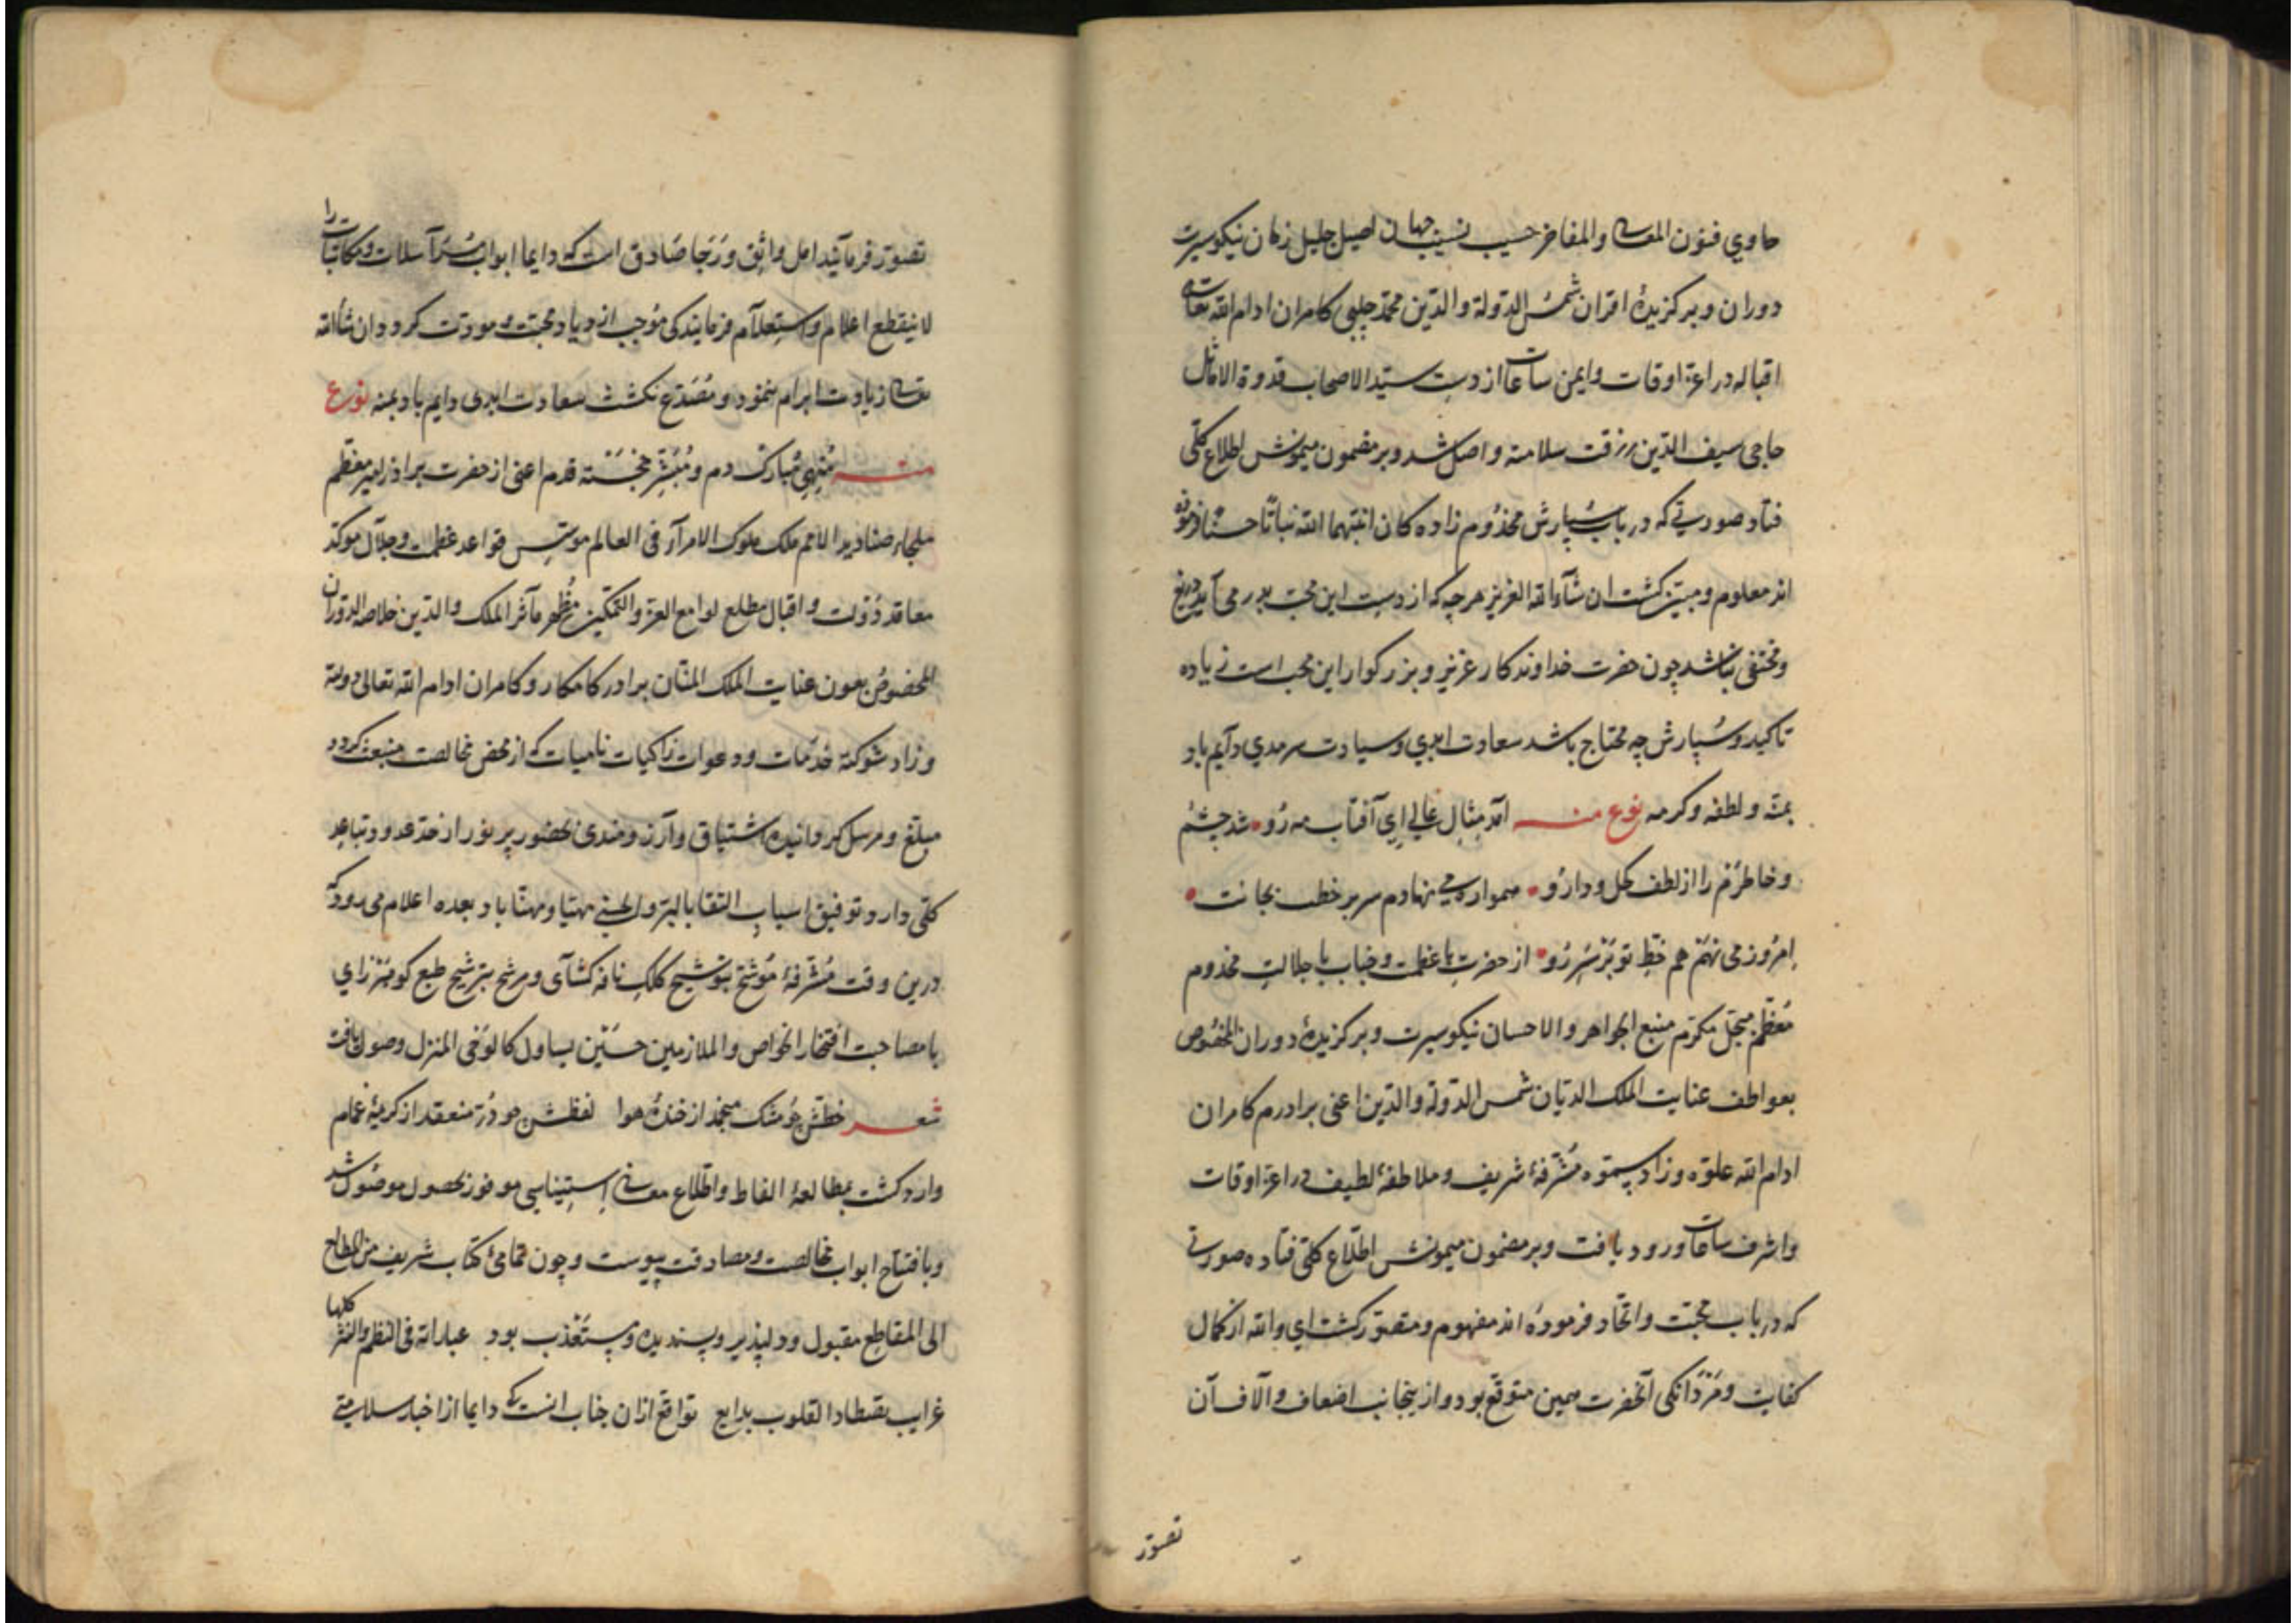 حاوي فنون المعالی والمفاخر حسیب نسیب جهان اصیل جلیل زمان نیکو سیرت
دوران وبرکزیدهٔ اقران شمس الدولة والدّین محمّد چلپی کامران ادام الله تعالی
اقباله در اعزّ اوقات وایمن ساعات از دست سیّد الاصحاب قدوة الاماثل
حاجی سیف الدّین رزقت سلامته واصل شد وبر مضمون میمونش اطلاع کلّی
فتاد صورتی که در باب سپارش مخدوم زاده کان انبتهما الله نباتًا حسنًا فرموده
اند معلوم ومبیّن کشت ان شآء الله العزیز هرچه که از دست این محبّ بدر می آید دریغ
ومختفی نباشد چون حضرت خداوندکار عزیز وبزرکوار این محب است زیاده
تاکید وسُپارش چه محتاج باشد سعادت ابدي وسیادت سرمدي دایم باد
بمنّه ولطفه وکرمه نوع منه آمد مثال عالی ای آفتاب مه رُو شد چشم
وخاطرم را از لطف کحل ودارُو همواره می نهادم سر بر خطت بجانت
اِمرُوز می نهم هم خطِّ تو بر سَر رُو از حضرتِ با عظمت وجناب با جلالتِ مخدوم
مُعظّم مبجّل مکرّم منبع الجواهر والاحسان نیکو سیرت وبرکزیدهٔ دوران المخصُوص
بعواطف عنایت الملک الدیّان شمس الدّولة والدّین اعنی برادرم کامران
ادام الله علوّه وزاد سموّه مُشرّفهٔ شریف وملاطفهٔ لطیف در اعزّ اوقات
واشرف ساعات ورود یافت وبر مضمون میمونش اطّلاع کلّی فتاده صورتی
که در باب محبّت واتّحاد فرموده اند مفهوم ومتصوّر کشت اي والله از کمال
کفایت ومَردانکی آنحضرت همین متوقّع بود واز ینجانب اضعاف وآلاف آن
تصوّر
تصوّر فرمآیند امل واثق ورَجا صَادق است که دایما ابواب مُراسلات ومکاتبات را
لا ینقطع اعلام واستِعلآم فرمایند کی مُوجب ازدیاد محبّت ومودّت کردد ان شآء الله
تعالی زیادت ابرام ننمُود ومُصَدّع نکشت سَعادت ابدی دایم باد بمنه نوع
منه مُنهیِ مُبارک دم ومُبَشّر خجَسته قدم اعنی از حضرت برادر امیر معظّم
ملجاء صنادید الامم ملک ملوک الامرآء فی العالم موسّس قواعد عظمت وجلآل موکّد
معاقد دَولت واقبال مطلع لوامع العزّ والتّمکین مُظهر مآثر الملک والدّین خلاصه الدّوران
المخصُوص بعون عنایت الملک المنّان برادر کامکار وکامران ادام الله تعالی دولته
وزاد شوکته خدمات ودعوات زاکیات نامیات که از محض مخالصت منبعث کردد
مبلّغ ومرسل کردانیده اشتیاق وآرزومندی بحضور پر نور از حدّ عدو وتباعد
کلّی دارد وتوفیق اسباب التقا بالیُر ول لحسنی مهیّا ومهنّا باد بعده اعلام می رود که
درین وقت مُشرّفهٔ مُوشّح بتوشیح کلک نافه کشآی ومرشّح بترشیح طبع کوهَر زاي
با مصاحبت افتخار الخواص والملازمین حسَین یساول کالوَحی المنزل وصول یافت
شعر خطّش چو مشک منجمد از خندهٔ هوا لفظش چو دُرّ منعقد از کریهٔ غمام
وارد کشت بمطالعهٔ الفاظ واطّلاع معانی اِستِیناسی موفور بحصول موصُول شد
وبافتتاح ابواب مخالصت ومصادقت پیوست وچون تمامیٔ کتاب شریف من المطالع
الی المقاطع مقبول ودلپذیر وپسندیده ومستعذب بود عباراته فی النظم والنثر کلها
غرایب تصطاد القلوب بدایع تواقع ازان جناب انست که دایما از اخبار سلامتی